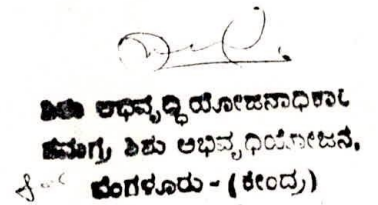 ಶಿಶು ಅಭಿವೃದ್ಧಿಯೋಜನಾಧಿಕಾರಿ
ಸಮಗ್ರ ಶಿಶು ಅಭಿವೃಧಿಯೋಜನೆ,
ಬೆಂಗಳೂರು - (ಕೇಂದ್ರ)